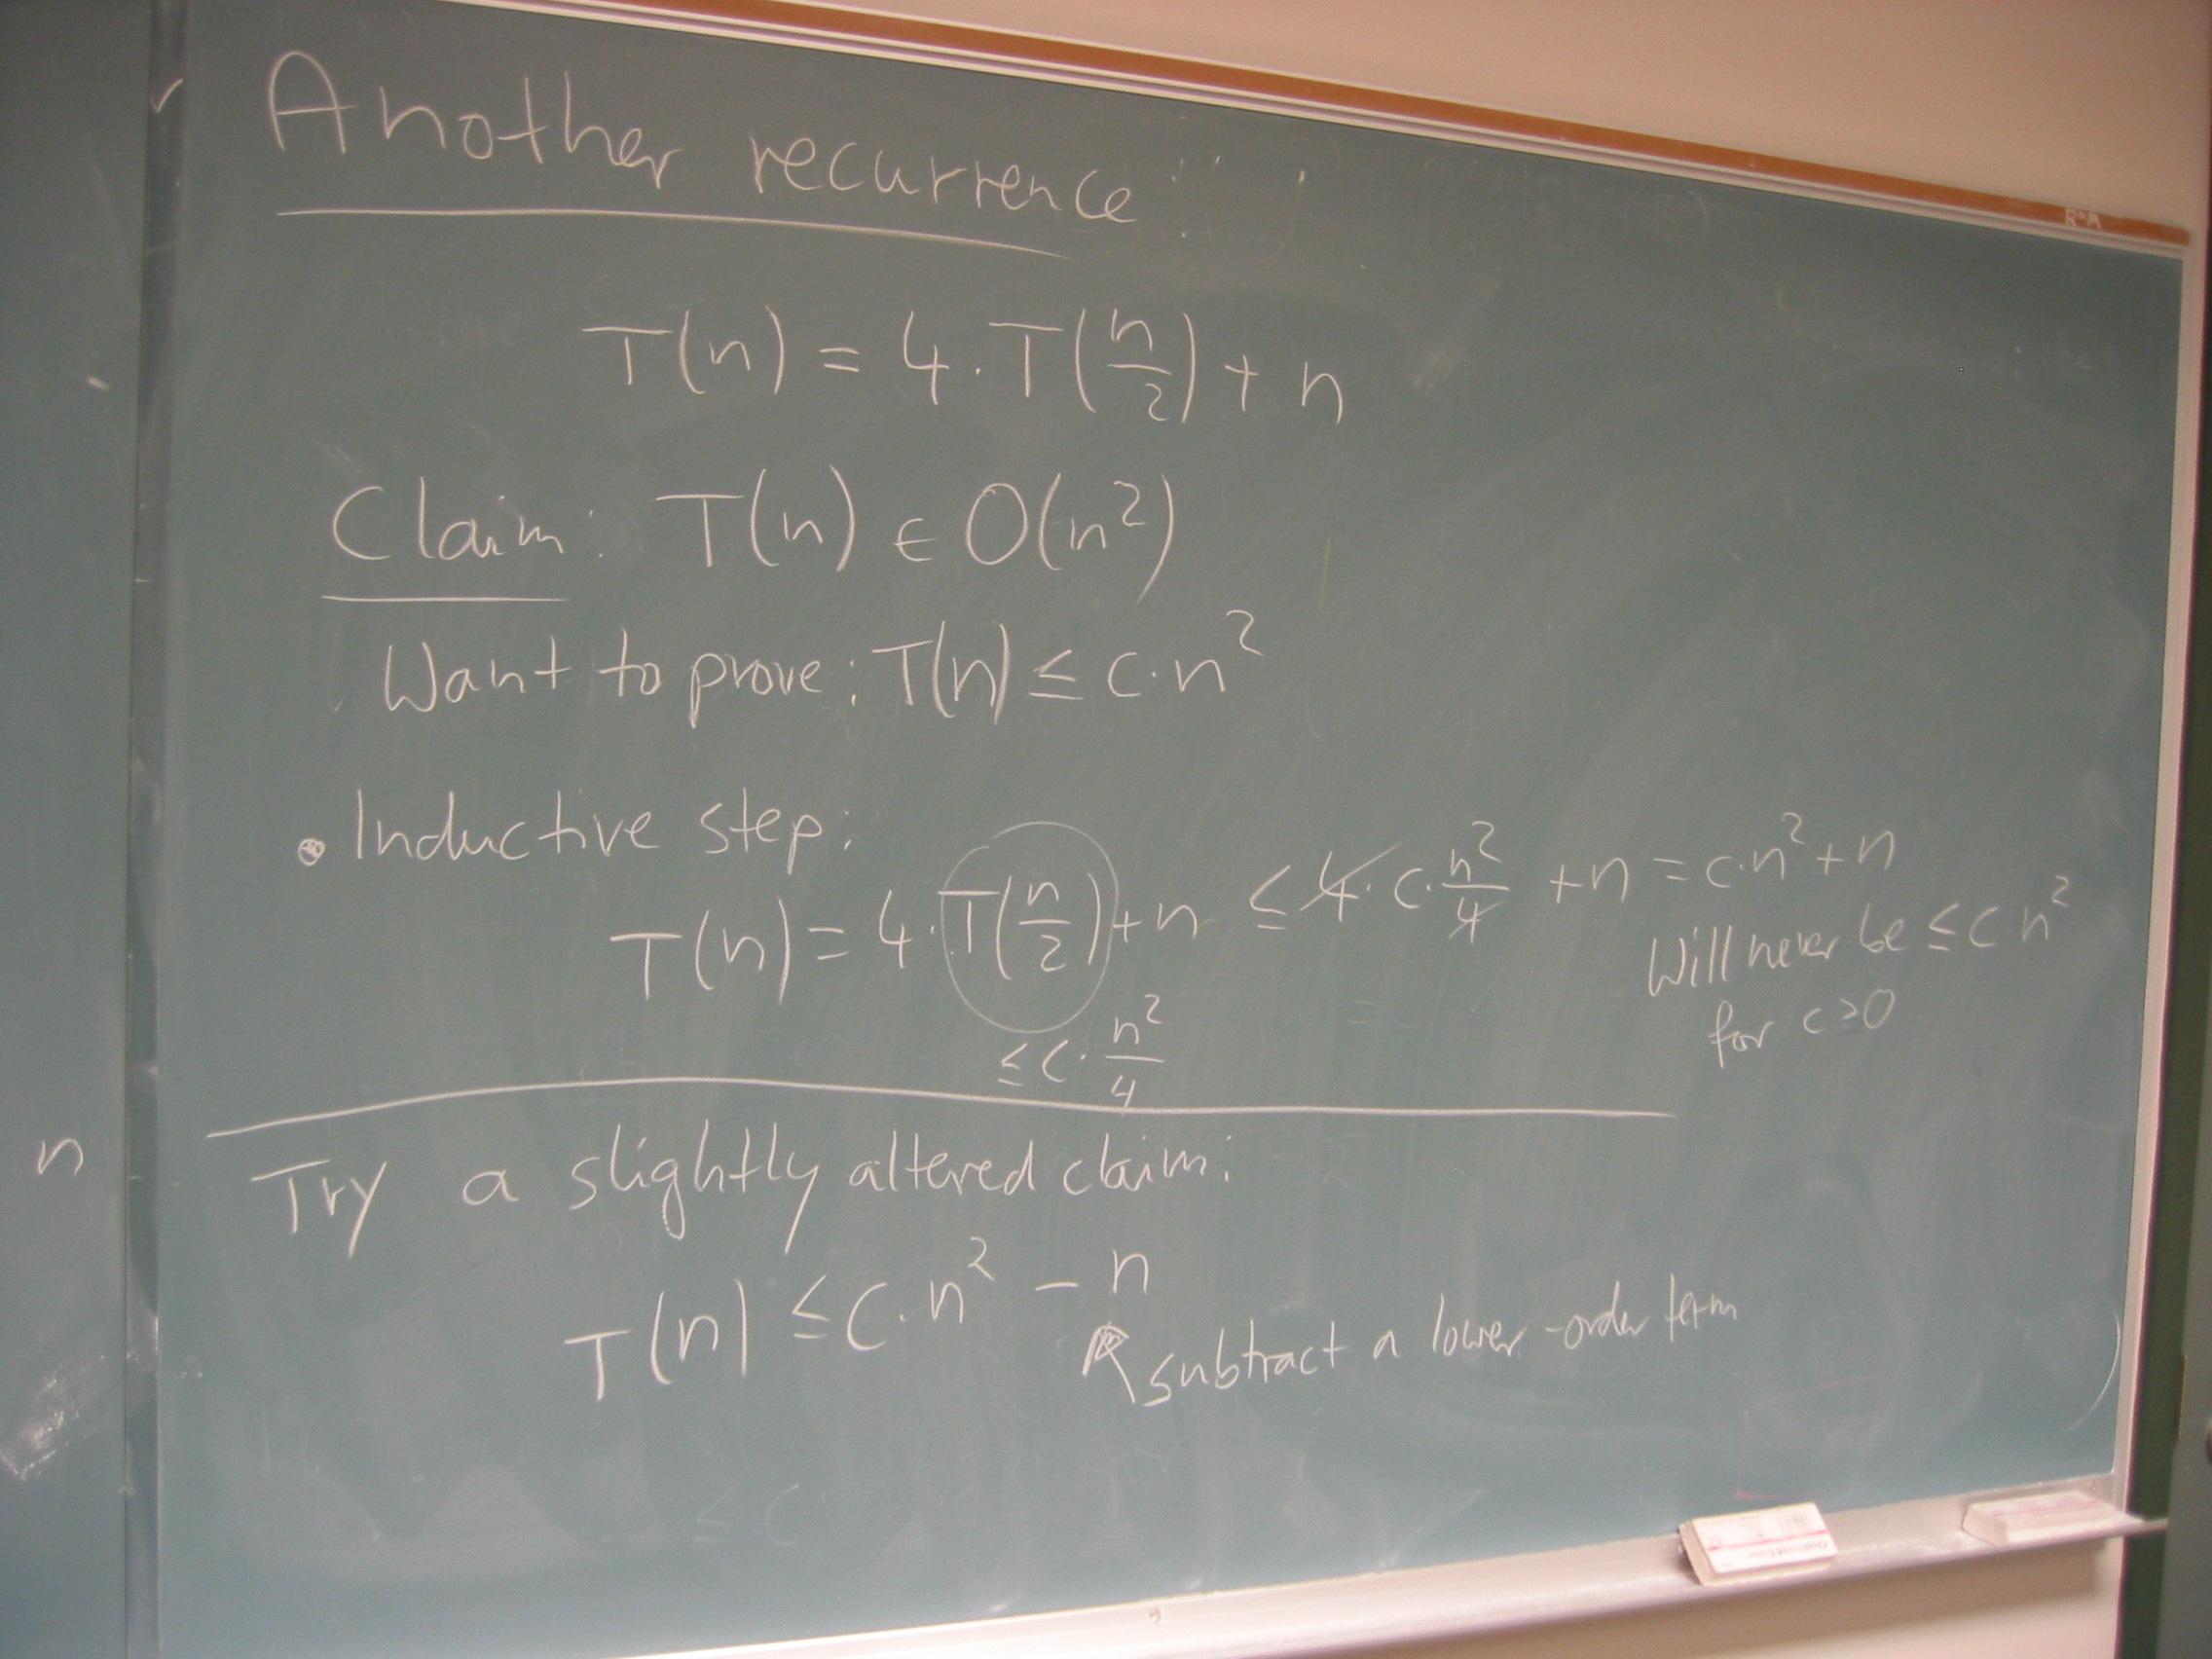 Another recurrence:
T(n) = 4·T(n/2) + n
Claim: T(n) ∈ O(n²)
Want to prove: T(n) ≤ c·n²
• Inductive step:
T(n) = 4·T(n/2) + n ≤ 4·c·n²/4 + n = c·n² + n
≤ c·n²/4
Will never be ≤ c n²
for c>0
Try a slightly altered claim:
T(n) ≤ c·n² - n
subtract a lower-order term
n